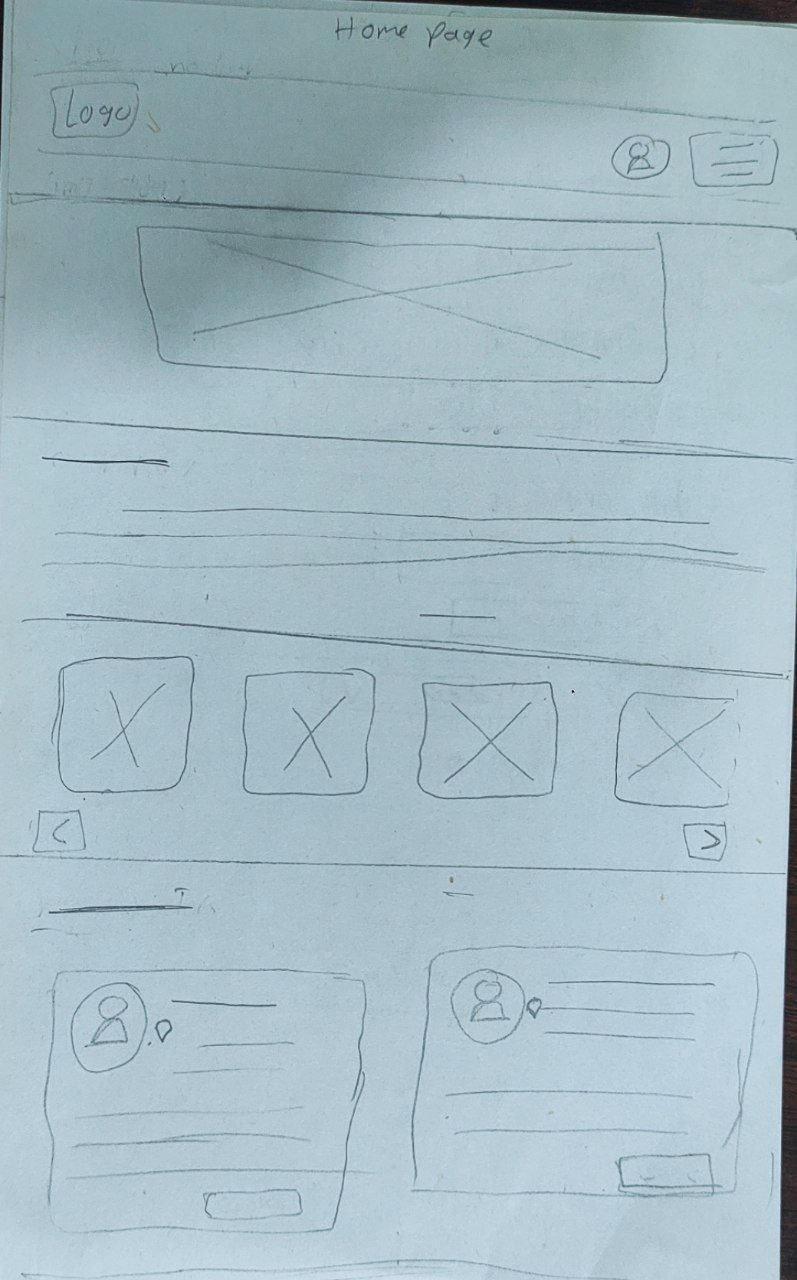 Home page
Logo